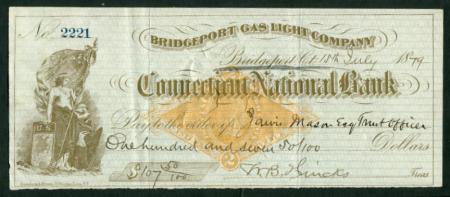 No. 2221
BRIDGEPORT GAS LIGHT COMPANY
Bridgeport Ct. 18th July 1879
Connecticut National Bank
Pay to the order of Mason Esq Trust Officer
One hundred and seven 50/100 Dollars
$107 50/100 W.B. Hincks Treas
U.S.
2